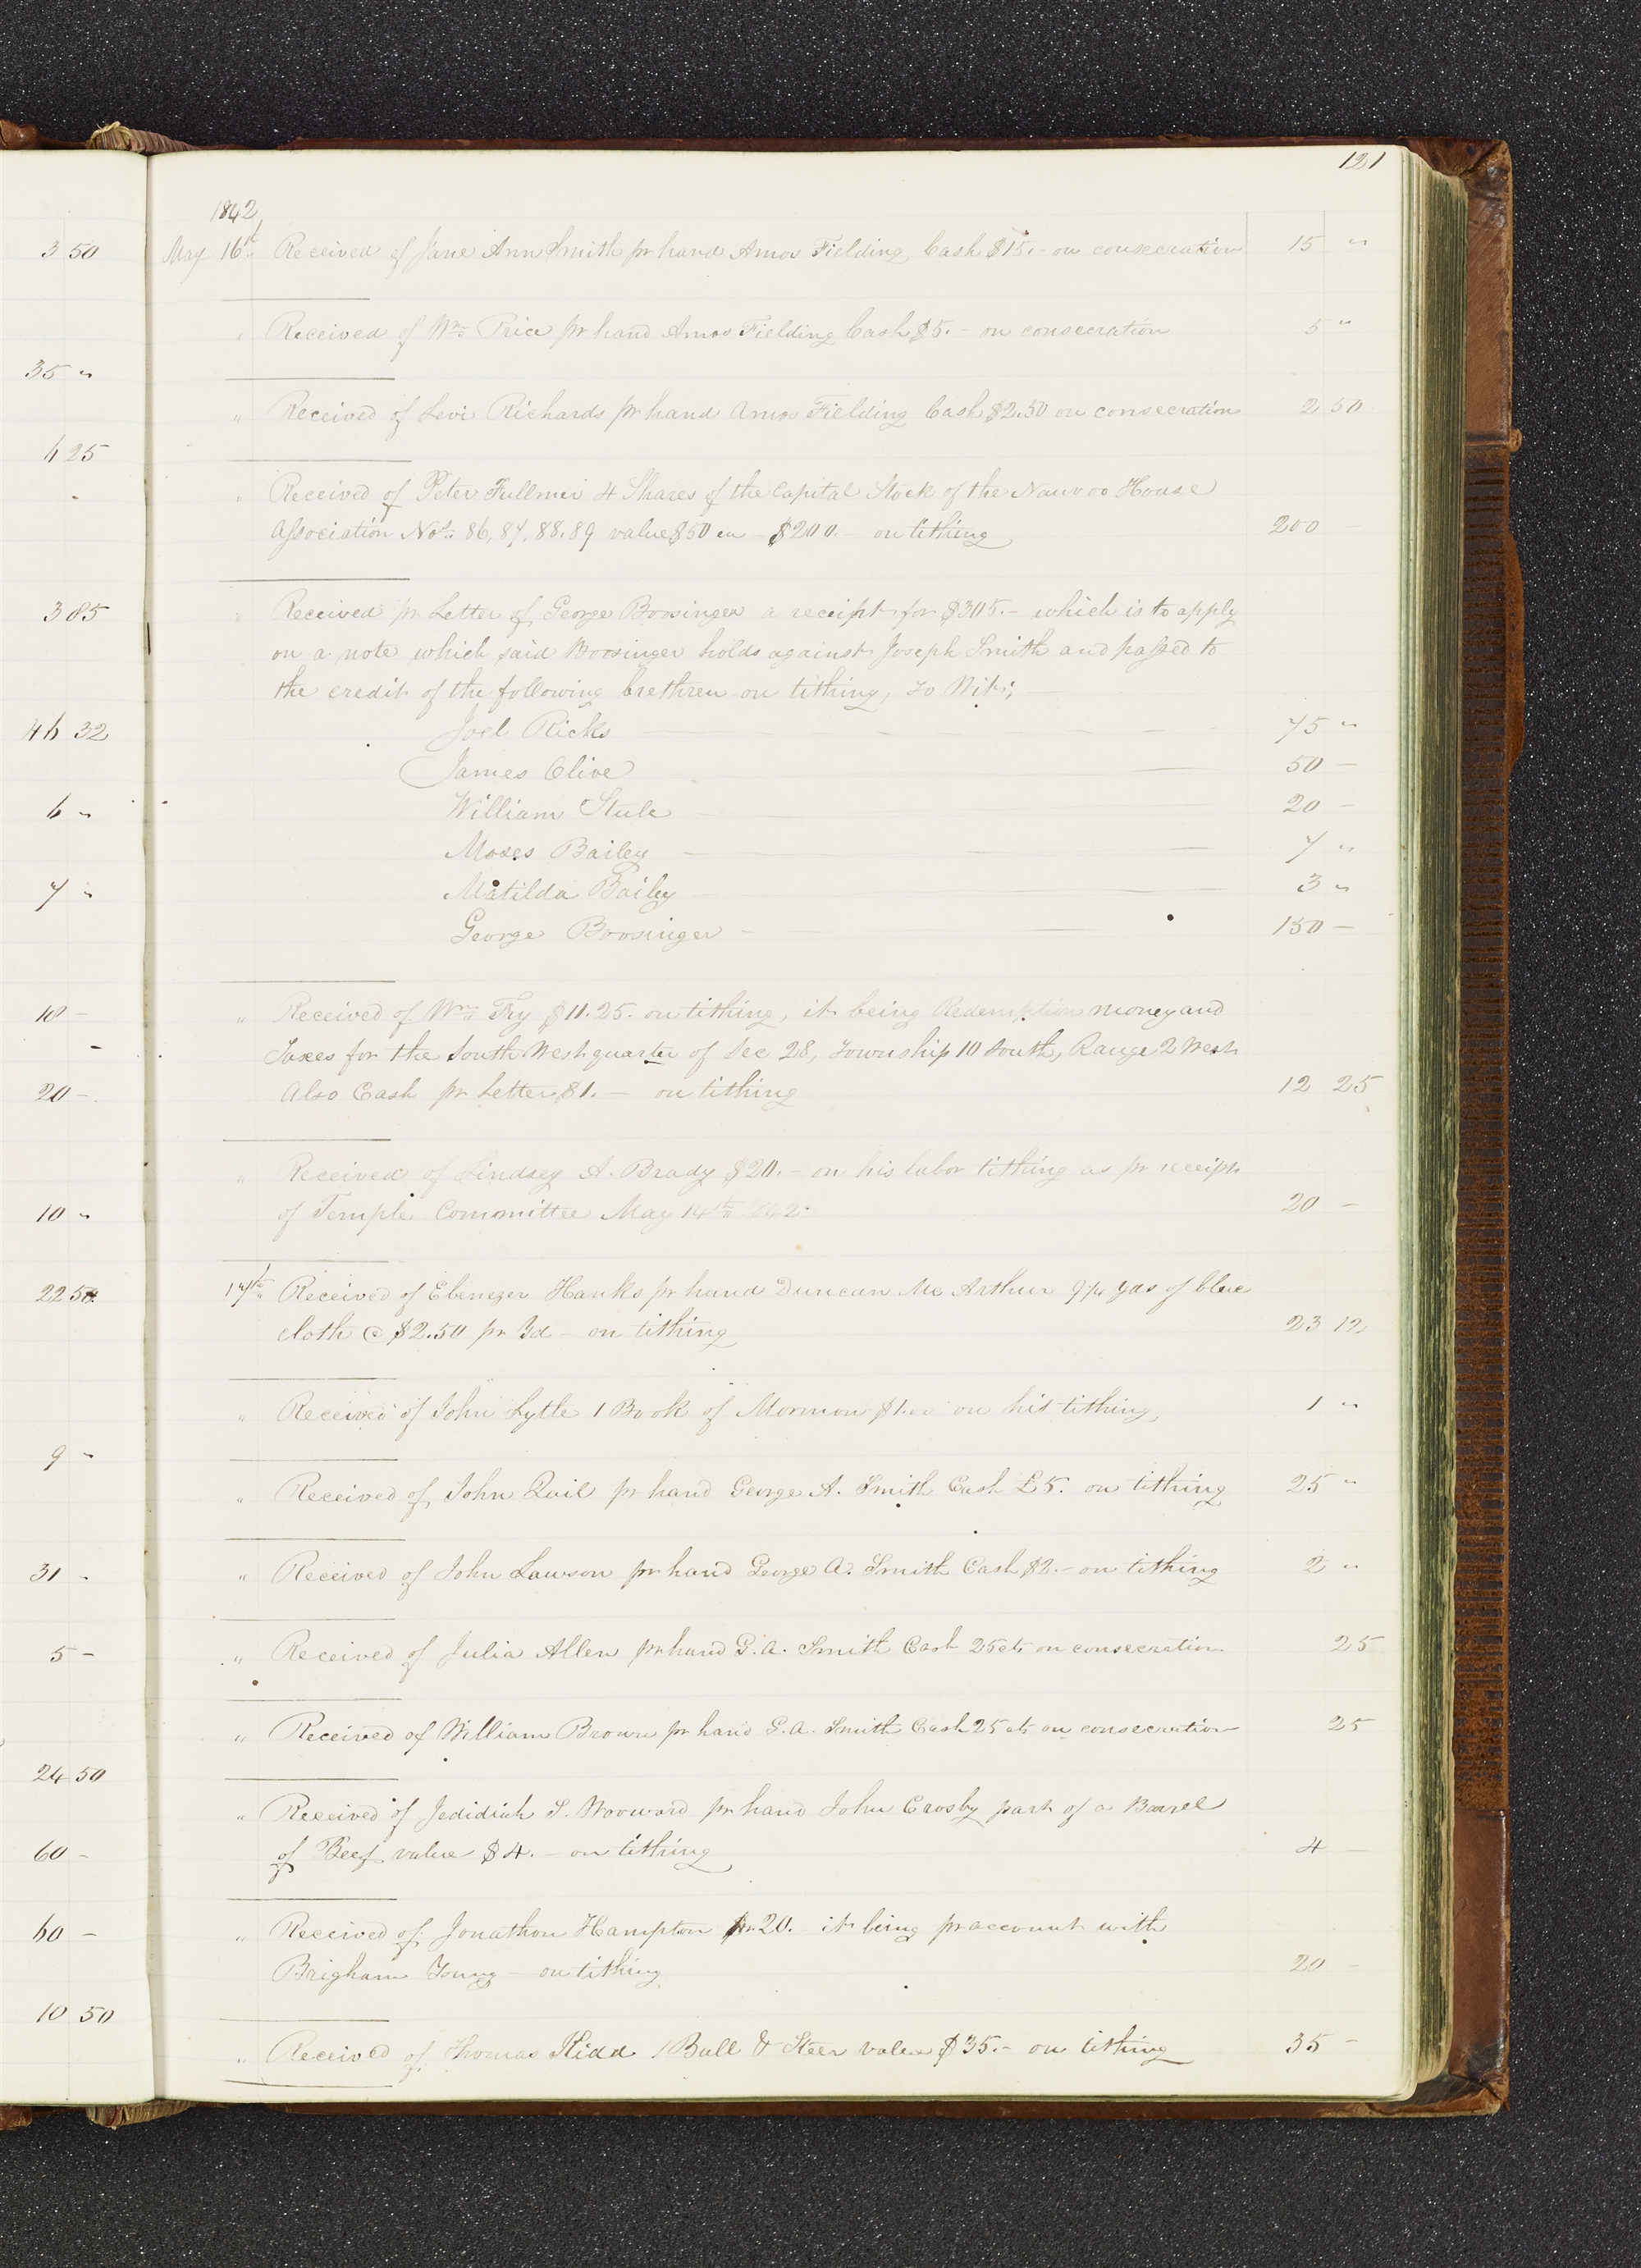 3 50
35 "
6 25
3 85
46 32
6 "
7 "
18 -
20 -
10 "
22 50
9 "
31 -
5 -
24 50
60 -
60 -
10 50
121
1842
May 16th Received of Jane Ann Smith pr hand Amos Fielding Cash $15.- on consecration 15 "
" Received of Wm Price pr hand Amos Fielding Cash $5.- on consecration 5 "
" Received of Levi Richards pr hand Amos Fielding Cash $2.50 on consecration 2 50
" Received of Peter Fullmer 4 Shares of the Capital Stock of the Nauvoo House
Association Nos. 86, 87, 88, 89 value $50 ea - $200.- on tithing 200 -
" Received pr Letter of George Boosinger a receipt for $305.- which is to apply
on a note which said Boosinger holds against Joseph Smith and passed to
the credit of the following brethren on tithing, to Wit;
Joel Ricks 75 "
James Olive 50 -
William Stule 20 -
Moses Bailey 7 "
Matilda Bailey 3 "
George Boosinger 150 -
" Received of Wm Fry $11.25. on tithing, it being Redemption money and
Taxes for the South West quarter of Sec 28, Township 10 South, Range 2 West
Also Cash pr Letter $1.- on tithing 12 25
" Received of Lindsey A. Brady $20.- on his labor tithing as pr receipt
of Temple Committee May 14th 1842. 20 -
17th Received of Ebenezer Hanks pr hand Duncan Mc Arthur 9 1/4 yds of blue
cloth @ $2.50 pr Yd - on tithing 23 12
" Received of John Lytle 1 Book of Mormon $1.00 on his tithing, 1 "
" Received of John Quil pr hand George A. Smith Cash £5. on tithing 25 "
" Received of John Lawson pr hand George A. Smith Cash $2.- on tithing 2 "
" Received of Julia Allen pr hand G. A. Smith Cash 25cts on consecration 25
" Received of William Brown pr hand G. A. Smith Cash 25cts on consecration 25
" Received of Jedidiah S. Wooward pr hand John Crosby part of a Barrel
of Beef value $4.- on tithing 4 -
" Received of Jonathon Hampton $20.- it being pr account with
Brigham Young - on tithing 20 -
" Received of Thomas Kidd 1 Bull & Steer value $35.- on tithing 35 -